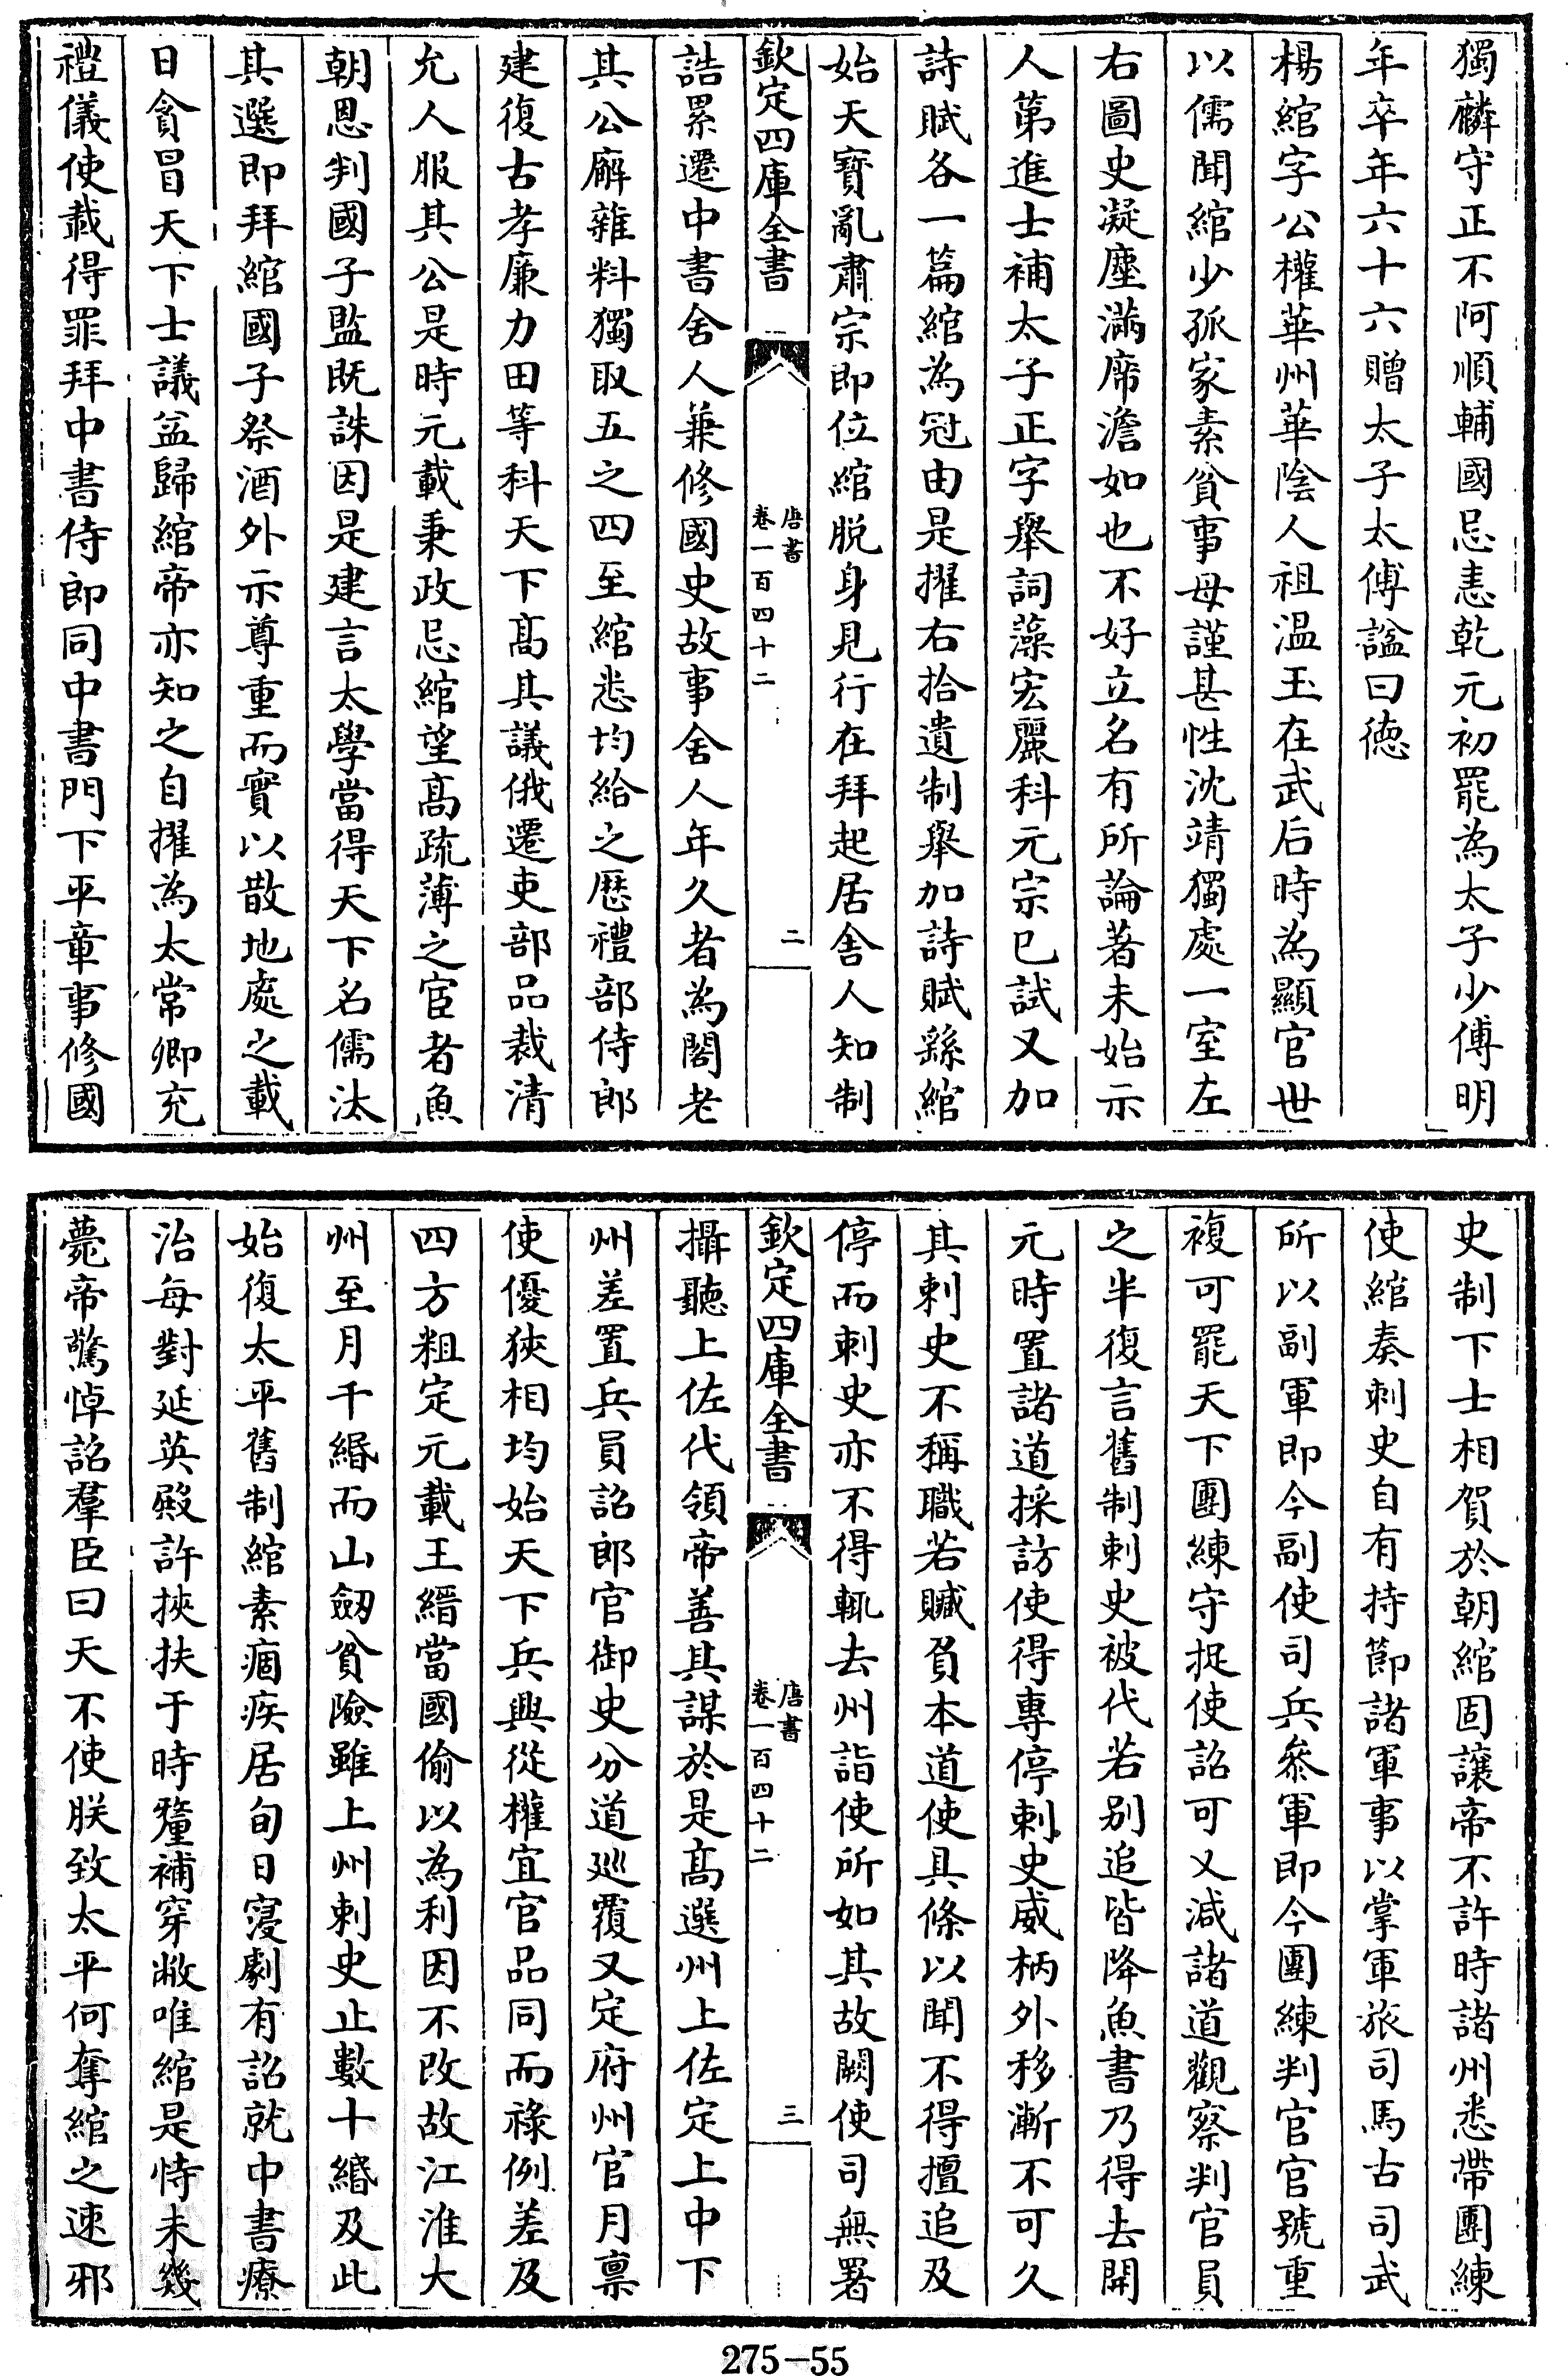 獨麟守正不阿順輔國忌恚乾元初罷為太子少傅明
年卒年六十六贈太子太傅諡曰徳
楊綰字公權華州華陰人祖温玉在武后時為顯官世
以儒聞綰少孤家素貧事母謹甚性沈靖獨處一室左
右圖史凝塵滿席澹如也不好立名有所論著未始示
人第進士補太子正字舉詞藻宏麗科元宗已試又加
詩賦各一篇綰為冠由是擢右拾遺制舉加詩賦繇綰
始天寶亂肅宗即位綰脱身見行在拜起居舎人知制
欽定四庫全書
唐書
卷一百四十二
二
誥累遷中書舍人兼修國史故事舍人年久者為閣老
其公廨雜料獨取五之四至綰悉均給之歴禮部侍郎
建復古孝廉力田等科天下髙其議俄遷吏部品裁清
允人服其公是時元載秉政忌綰望髙疏薄之宦者魚
朝恩判國子監既誅因是建言太學當得天下名儒汰
其選即拜綰國子祭酒外示尊重而實以散地處之載
日貪冒天下士議益歸綰帝亦知之自擢為太常卿充
禮儀使載得罪拜中書侍郎同中書門下平章事修國
史制下士相賀於朝綰固讓帝不許時諸州悉帶團練
使綰奏刺史自有持節諸軍事以掌軍旅司馬古司武
所以副軍即今副使司兵參軍即今團練判官官號重
複可罷天下團練守捉使詔可又減諸道觀察判官員
之半復言舊制刺史被代若别追皆降魚書乃得去開
元時置諸道採訪使得專停刺史威柄外移漸不可久
其刺史不稱職若贓負本道使具條以聞不得擅追及
停而刺史亦不得輒去州詣使所如其故闕使司無署
欽定四庫全書
唐書
卷一百四十二
三
攝聽上佐代領帝善其謀於是髙選州上佐定上中下
州差置兵員詔郎官御史分道巡覆又定府州官月稟
使優狹相均始天下兵興從權宜官品同而祿例差及
四方粗定元載王縉當國偷以為利因不改故江淮大
州至月千緡而山劔貧險雖上州刺史止數十緡及此
始復太平舊制綰素痼疾居旬日寖劇有詔就中書療
治每對延英殿許挾扶于時釐補穿敝唯綰是恃未幾
薨帝驚悼詔羣臣曰天不使朕致太平何奪綰之速邪
275-55